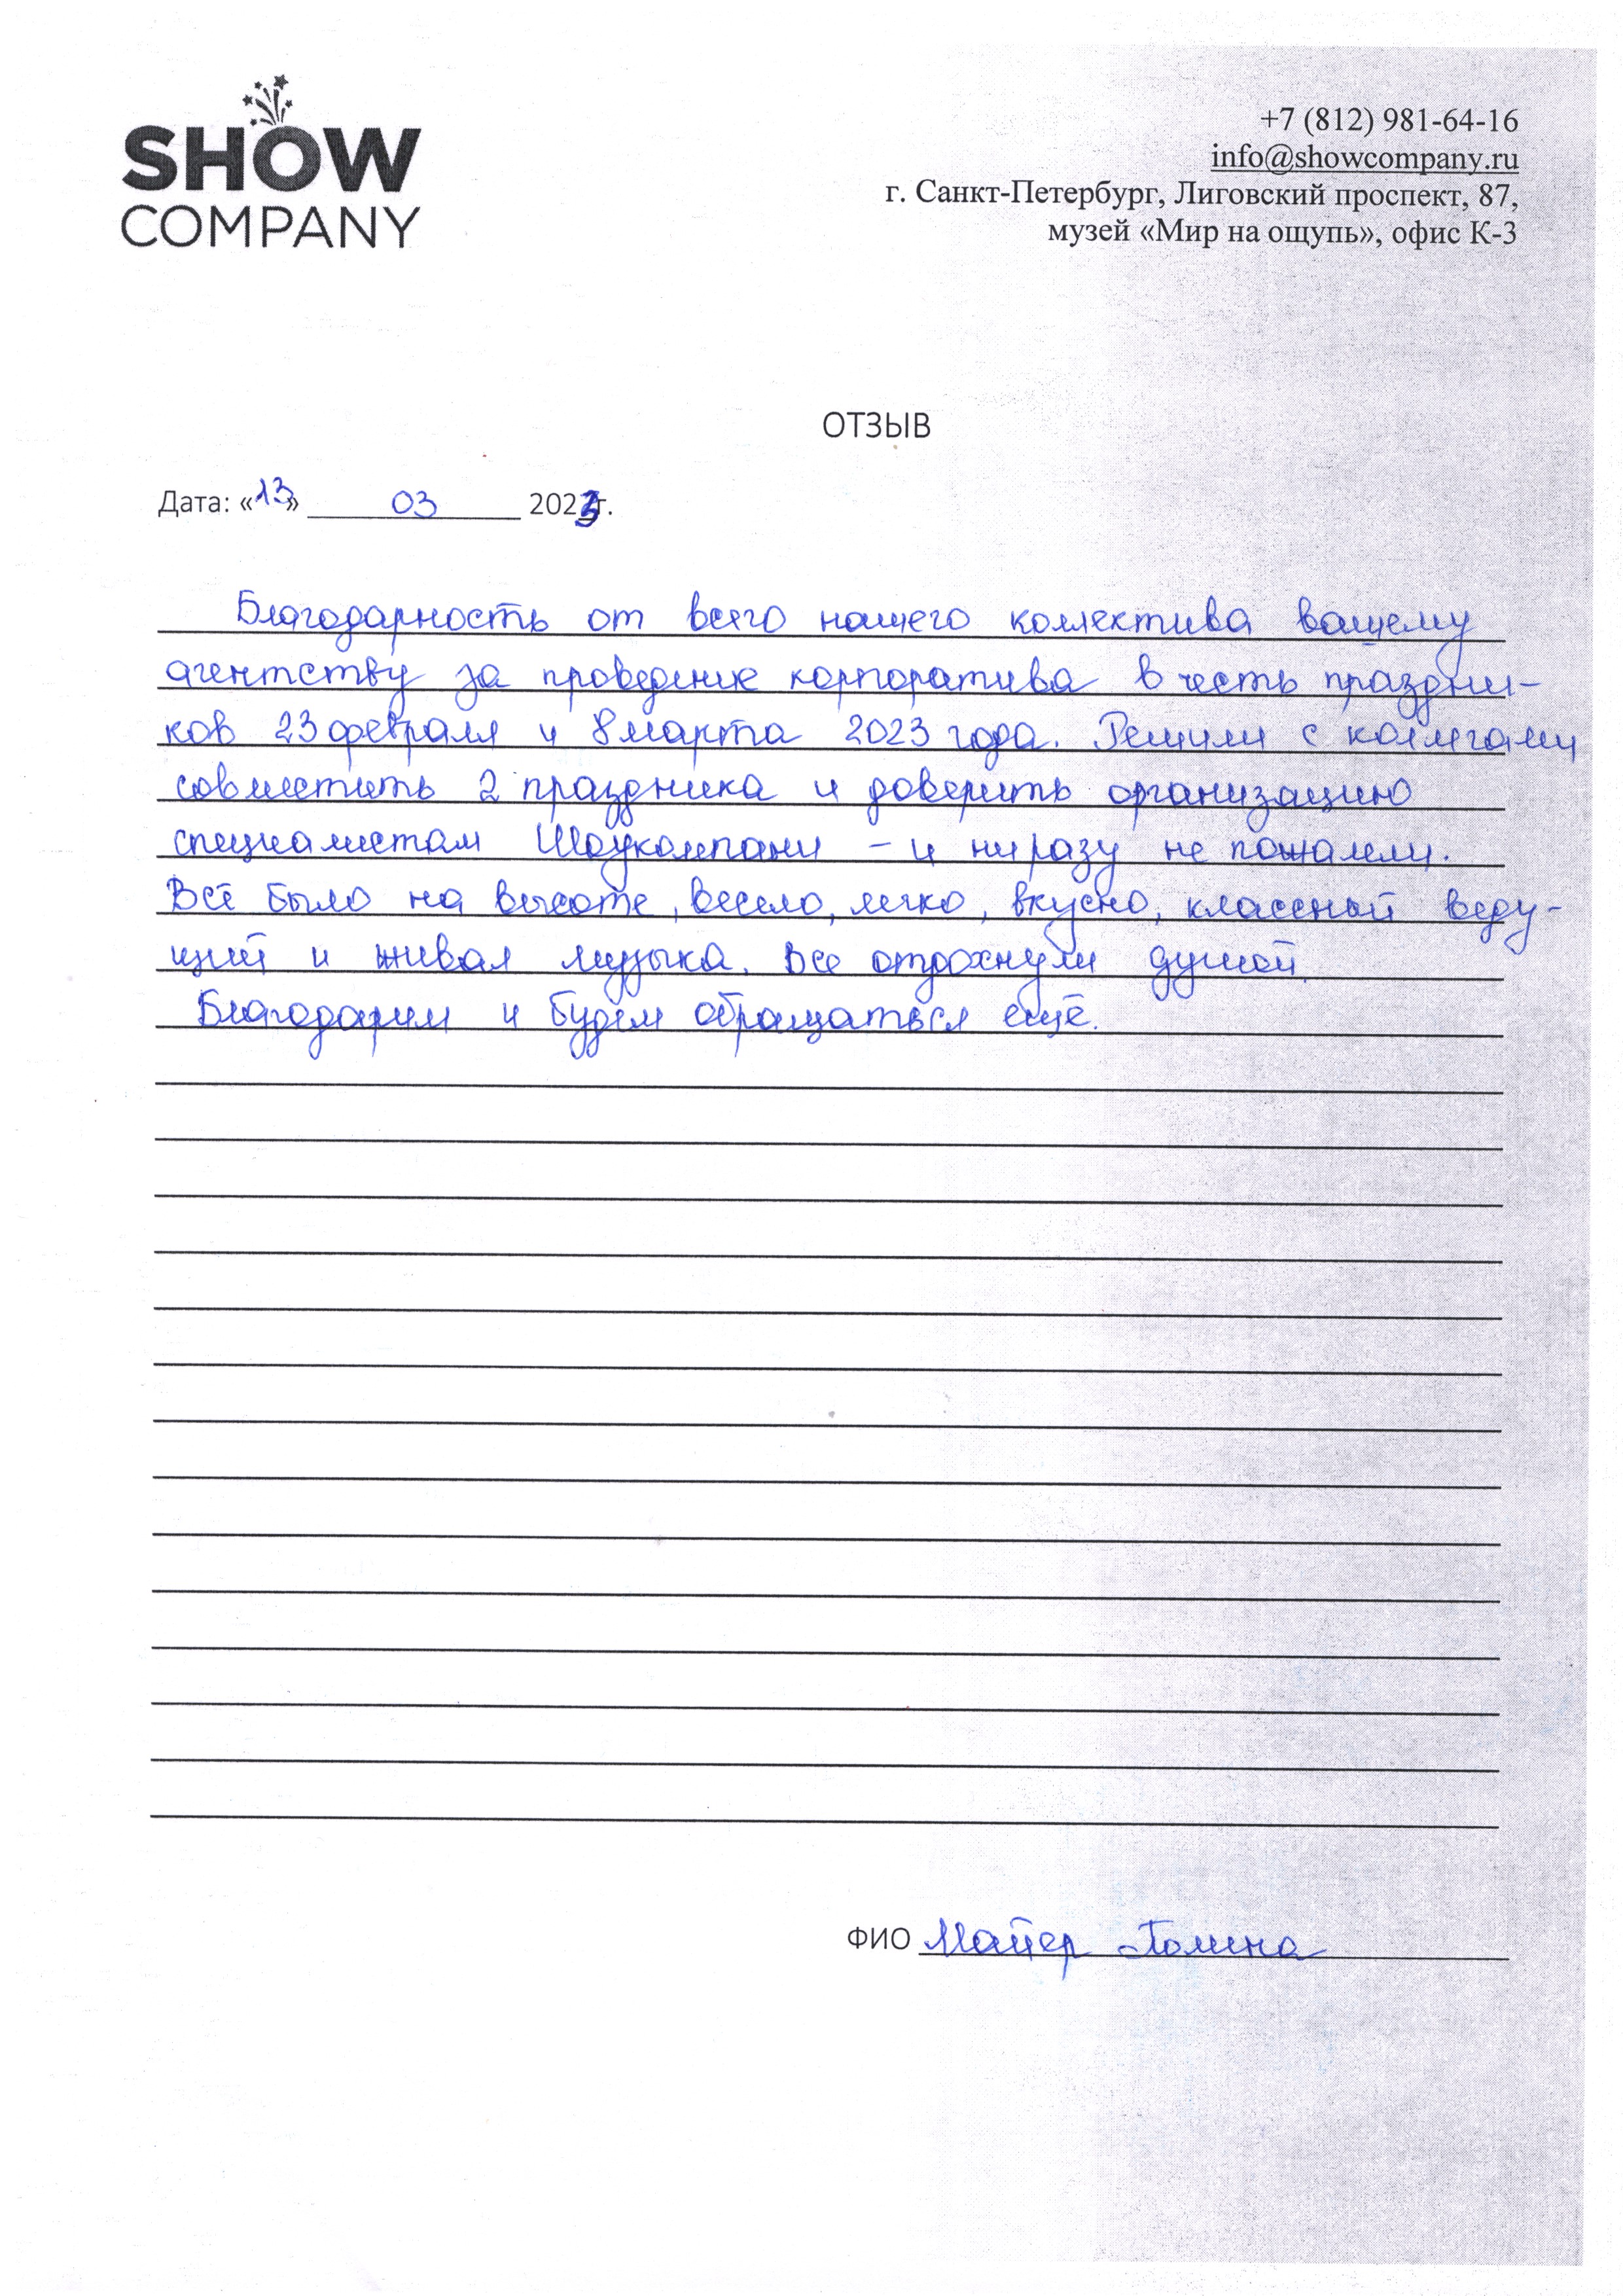 SHOW
COMPANY
+7 (812) 981-64-16
info@showcompany.ru
г. Санкт-Петербург, Лиговский проспект, 87,
музей «Мир на ощупь», офис К-3
ОТЗЫВ
Дата: «13» 03 2023г.
Благодарность от всего нашего коллектива вашему
агентству за проведение корпоратива в честь праздни-
ков 23 февраля и 8 марта 2023 года. Решили с коллегами
совместить 2 праздника и доверить организацию
специалистам Шоукомпани - и ни разу не пожалели.
Всё было на высоте, весело, легко, вкусно, классный веду-
щий и живая музыка. Все отдохнули душой.
Благодарим и будем обращаться ещё.
ФИО Майер Полина